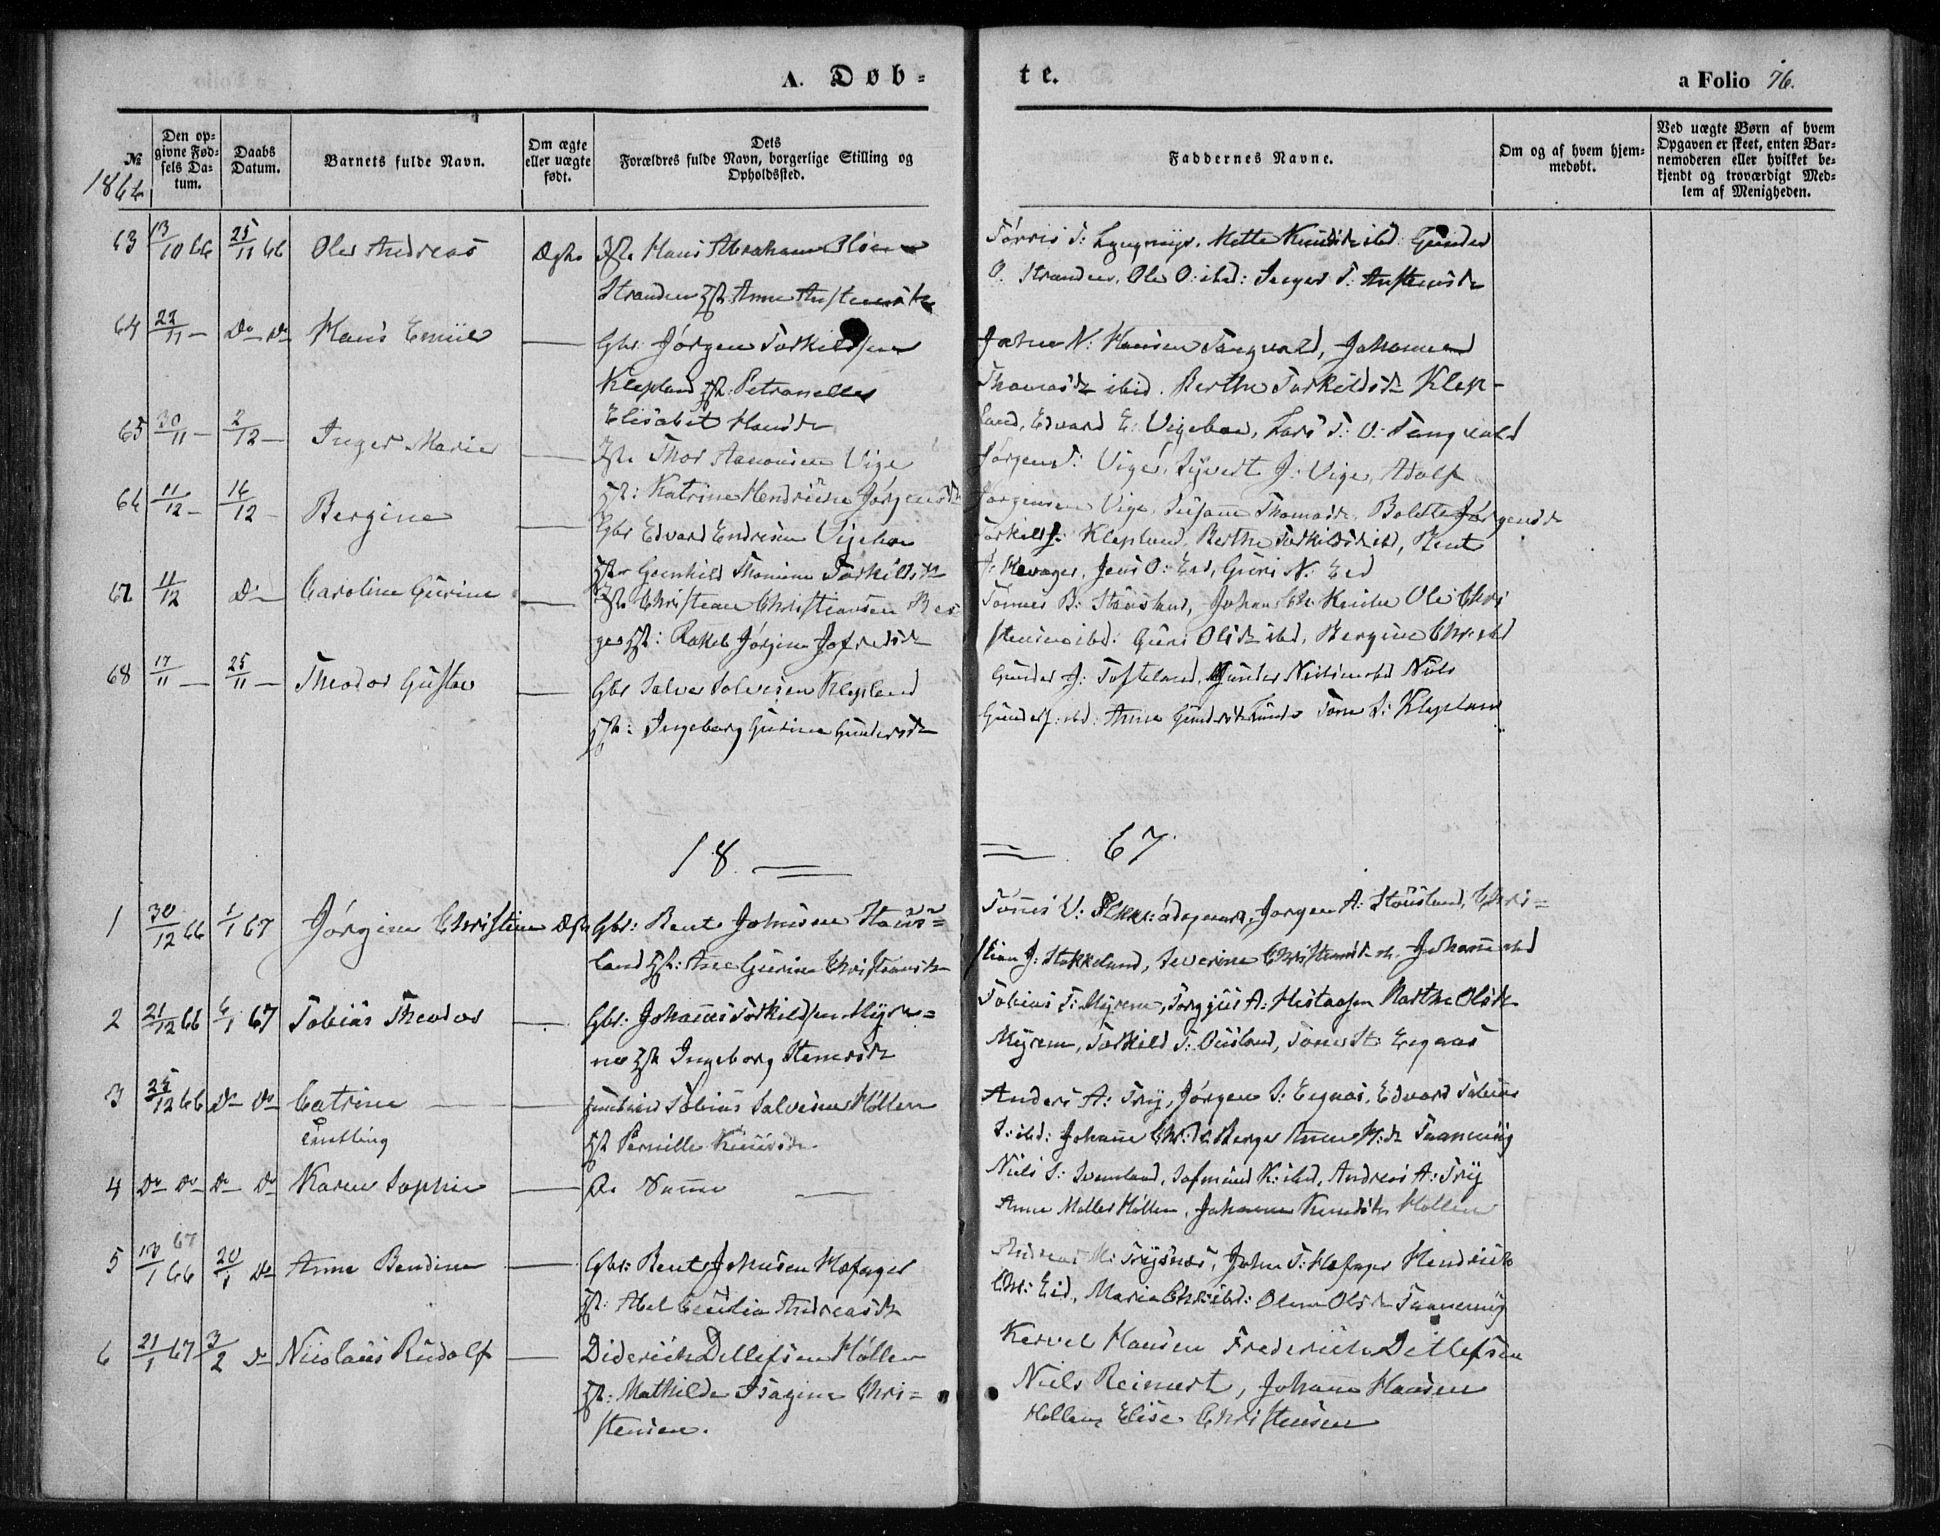 A. Døb=
te.
a Folio 76.
№
Den op-
givne Fød-
sels Da-
tum.
Daabs
Datum.
Barnets fulde Navn.
Om ægte
eller uægte
født.
Dets
Forældres fulde Navn, borgerlige Stilling og
Opholdssted.
Faddernes Navne.
Om og af hvem hjem-
medøbt.
Ved uægte Børn af hvem
Opgaven er skeet, enten Bar-
nemoderen eller hvilket be-
kjendt og troværdigt Med-
lem af Menigheden.
1866
63 13/10 66 25/11 66 Ole Andreas Ægte Hans Abraham
Stranden Anne Austensdtr
Tørris T: Lyngmyr, Mette Knudsdtr ibd: Gunder
O. Stranden, Ole O: ibd: Inger T: Austensdtr
64 22/11 — Do Do Hans Emil — Gbr: Jørgen Torkildsen
Klepland Petronelle
Elisabet Hansdtr
John N: Hansen Tangvald, Johanne
Thomasdtr ibid. Berthe Torkildsdtr Klep-
land, Edvard E: Vigeboe, Lars T: O: Tangvald
65 30/11 — 2/12 — Inger Marie — Thor Aanonsen Vige
Katrine Hendrikine Jørgensdtr
Jørgen T: Vige, Syvert J: Vige, Adolf
Jørgensen Vige, Susanne Thomasdtr, Bolette Jørgensdtr
66 11/12 — 16/12 — Bergine — Gbr Edvard Endresen Vigeboe
Gunhild Thomine Torkildsdtr
Torkild J: Klepland, Berthe Torkildsdtr ibd, Bent
J: Høvager, Jens O: Eed, Guri N: Eed
67 11/12 Do Caroline Gurine — Christian Christiansen Ber
ge Rakel Jørgine Jofredsdtr
Tønnes B: Stausland, Johan Chr: Ole Chri
stensen ibd: Guri Olsdtr ibd, Bergine Chr: ibd
68 17/11 — 25/11 — Theodor Gustav — Gbr Salve Salvesen Klepland
Ingeborg Gurine Gundersdtr
Gunder J: Tofteland, Gunder Nielsen ibd Niels
Gunders: ibd: Anne Gundersdtr Tone S: Klepland
18 — 67
1 30/12 66 1/1 67 Jørgine Christine Ægte Gbr: Bent Johnsen Staus=
land Ane Gurine Christiansdtr
Tønnes O: Jørgen A: Stausland, Chris=
tian J: Stokkeland, Severine Christensdtr Johanne ibd
2 21/12 66 6/1 67 Tobias Theodor — Gbr: Johannes Torkildsen Myre=
ne Ingeborg Stenersdtr
Tobias T: Myrene, Torgjus A: Marthe Olsdtr
Myrene, Torkild T: Ousland, Tone St: Eegnas
3 25/12 66 Do Do Catrine — — Tobias Salvesen Høllen
Tvilling
Pernille Knudsdtr
Anders A: Try, Jørgen S: Eegnas, Edvard Tobias
S: ibd: Johanne Chr:dtr Berge Anne H:dtr Taanevig
4 Do Do Do Do Karen Sophie — De Samme —
Niels S: Svenland, Salmund K: ibd, Andreas A: Try
Anne Møller Høllen, Johanne Knudsdtr Høllen
5 13/1 66 67 20/1 Do Anne Bendine — Gbr: Bent Johnsen Høfager
Abel Cecilia Andreasdtr
Andreas M: Trysnæs, John T: Høfager Hendrick
Chr: Eid, Maria Chr: ibd: Olene Olsdtr Taanevig
6 21/1 67 3/2 Do Nicolaus Rudolf — Diderich Detlefsen Høllen
Mathilde Isagine Chri=
stensen.
Kervel Hansen Frederich Ditlefsen
Niels Reinert, Johan Hansen
Høllen, Elise Christensen